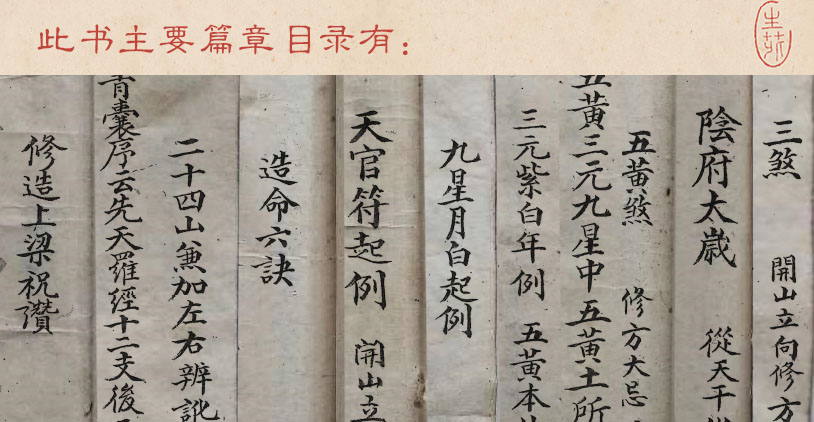 此书主要篇章目录有：
三煞 開山立向修方
陰府太歲 從天干
五黃煞 修方大忌
五黃三元九星中五黃土所
三元紫白年例 五黃本
九星月白起例
天官符起例 開山立
造命六訣
二十四山兼加左右辨訛
青囊序云先天羅經十二支後
修造上梁祝讚